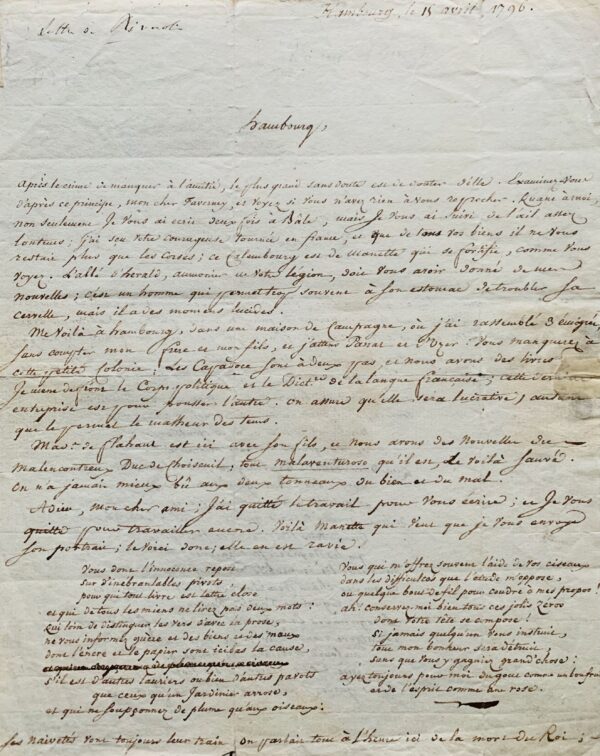 Lettre de Rivarol
Hambourg, le 15 avril 1796.
hambourg,
Après le crime de manquer à l'amitié, le plus grand sans doute est de douter d'elle. Examinez-vous
d'après ce principe, mon cher Tavernay, et voyez si vous n'avez rien à vous reprocher. Quant à moi,
non seulement je vous ai écrit deux fois à Bâle, mais je vous ai suivi de l'œil assez
lontems: j'ai seu votre courageuse tournée en france, et que de tous vos biens il ne vous
restait plus que les Corses; ce Calembourg est de Manette qui se fortifie, comme vous
voyez. L'abbé d'hérald, aumonier de votre légion, doit vous avoir donné de mes
nouvelles; c'est un homme qui permet trop souvent à son estomac de troubler sa
cervelle, mais il a des momens lucides.
Me voilà à hambourg, dans une maison de Campagne, où j'ai rassemblé 3 émigrés,
sans compter mon frère et mon fils, et j'attens Panat et
cette petite Colonie! Les sont à deux pas, et nous avons des livres
Je viens de finir le Corps politique et le Dictre. de la langue française; cette
entreprise est pour pousser l'autre. on assure qu'elle sera lucrative, autant
que le permet le malheur des tems.
Made. de flahaut est ici avec son fils, et nous avons des Nouvelles de
malencontreux Duc de Choiseuil, tout malaventuroso qu'il est, le voilà sauvé.
On n'a jamais mieux bû aux deux tonneaux du bien et du mal.
Adieu, mon cher ami; j'ai quitté le travail pour vous écrire; et je vous
quitte pour travailler encore. Voilà Manette qui veut que je vous envoye
son portrait; le voici donc; elle en est ravie.
Vous dont l'innocence repose
sur d'inébranlables pivots
pour qui tout livre est lettre close
et qui de tous les miens ne lirez pas deux mots:
qui loin de distinguer les vers d'avec la prose,
ne vous informez guère et des biens et des maux
dont l'encre et le papier sont ici bas la cause,
s'il est d'autres lauriers ou bien d'autres pavots
que ceux qu'un Jardinier arrose,
et qui ne soupçonnez de plume qu'aux oiseaux:
Vous qui m'offrez souvent l'aide de vos ciseaux
dans les difficultés que l'étude m'oppose,
ou quelque bout de fil pour coudre à mes propos!
ah! conservez moi bien tous ces jolis zéros
dont votre tête se compose!
si jamais quelqu'un vous instruit,
tout mon bonheur sera détruit,
sans que vous y gagniez grand'chose:
ayez toujours pour moi du gout comme un bon fruit
et de l'esprit comme une rose.
ses naivetés vont toujours leur train on parlait tout à l'heure ici de la mort du Roi;